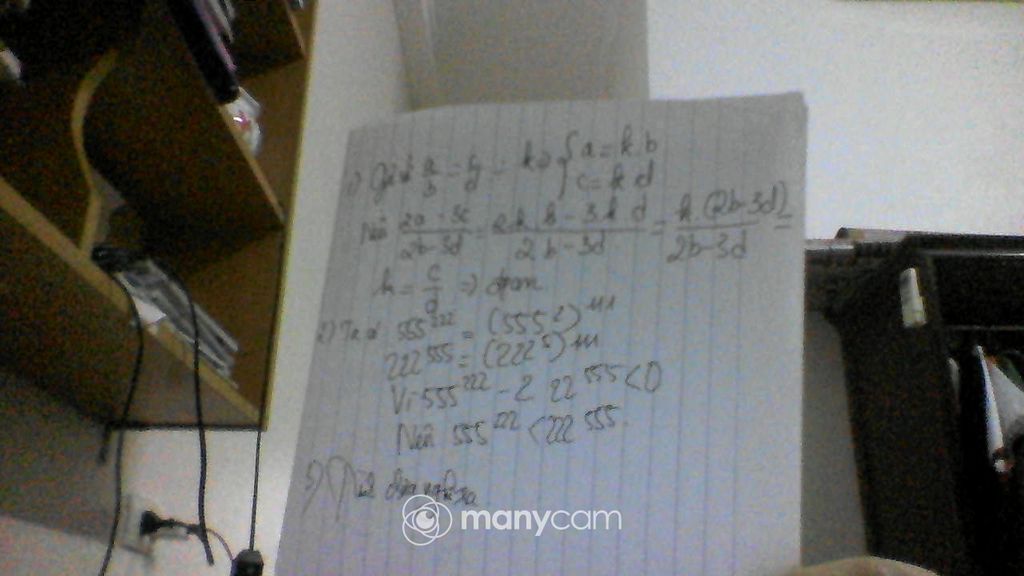 1) Giả sử a/b = c/d = k => { a = k.b
c = k.d
Nên (2a - 3c)/(2b - 3d) = (2.k.b - 3.k.d)/(2.b - 3d) = k.(2b-3d)/(2b-3d) =
k = c/d => đpcm
2) Ta có 555^222 = (555^2)^111
222^555 = (222^5)^111
Vì 555^222 - 222^555 < 0
Nên 555^222 < 222^555.
3)
manycam